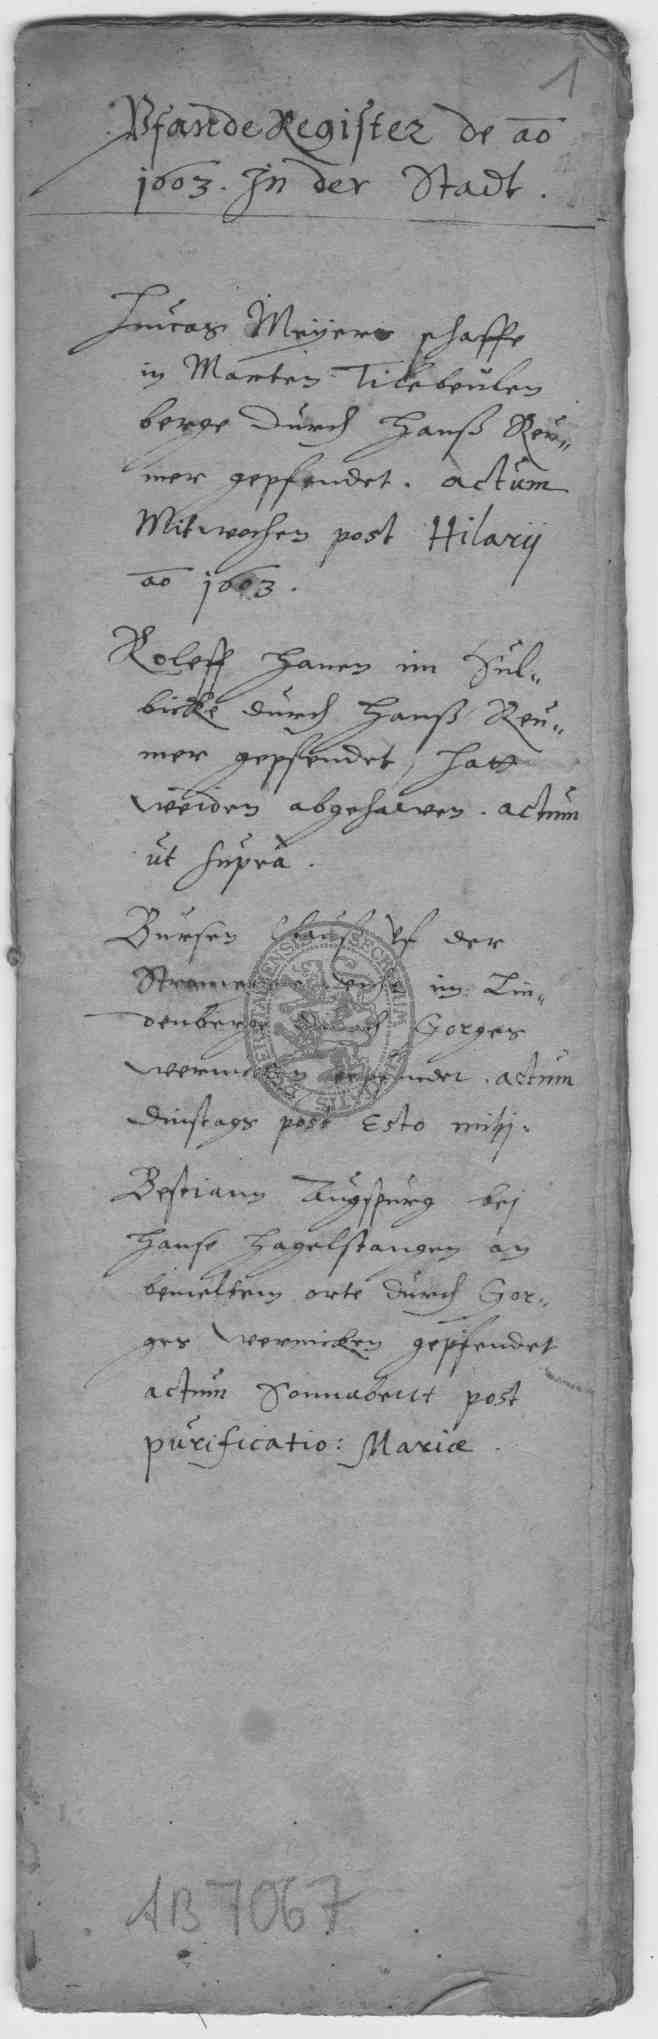 1
Pfande Register de ao
1603. In der Stadt.
Lucas Meyers schaffe
in Marten Tilebeulen
berge durch Hanß Reu„
mer gepfendet. actum
Mitwochen post Hilarij
ao 1603.
Roleff Hanen im Sül„
bicke durch Hanß Reu„
mer gepfendet, hatt
weiden abgehawen. actum
ut supra.
Bursen Clauß uf der
im Lin„
denberge durch Gorges
wernicken gepfendet. actum
dinstags post Esto mihj.
Bestiann Augspurg bej
Hanse Hagelstangen an
bemeltem orte durch Gor„
ges wernicken gepfendet
actum Sonnabent post
purificatio: Mariæ.
AB 7067